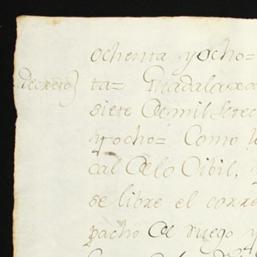 ochenta y ocho=
decreto) ta= Guadalaxa
siete de mil setec
y ocho= Como
cal de lo Cibil,
se libre el corre
pacho de ruego y